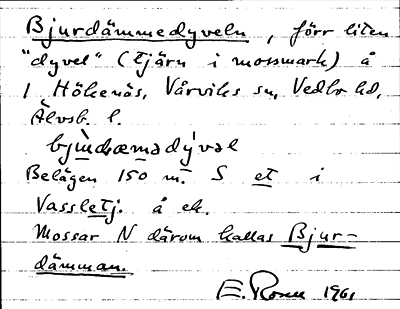 Bjurdämmedyveln, förr liten
"dyvel" (tjärn i mossmark) å
1 Hökenäs, Vårviks sn, Vedbo hd,
Älvsb. l.
Belägen 150 m. S et i
Vassletj. å ek.
Mossar N därom kallas Bjur-
dämman.
E. 1961